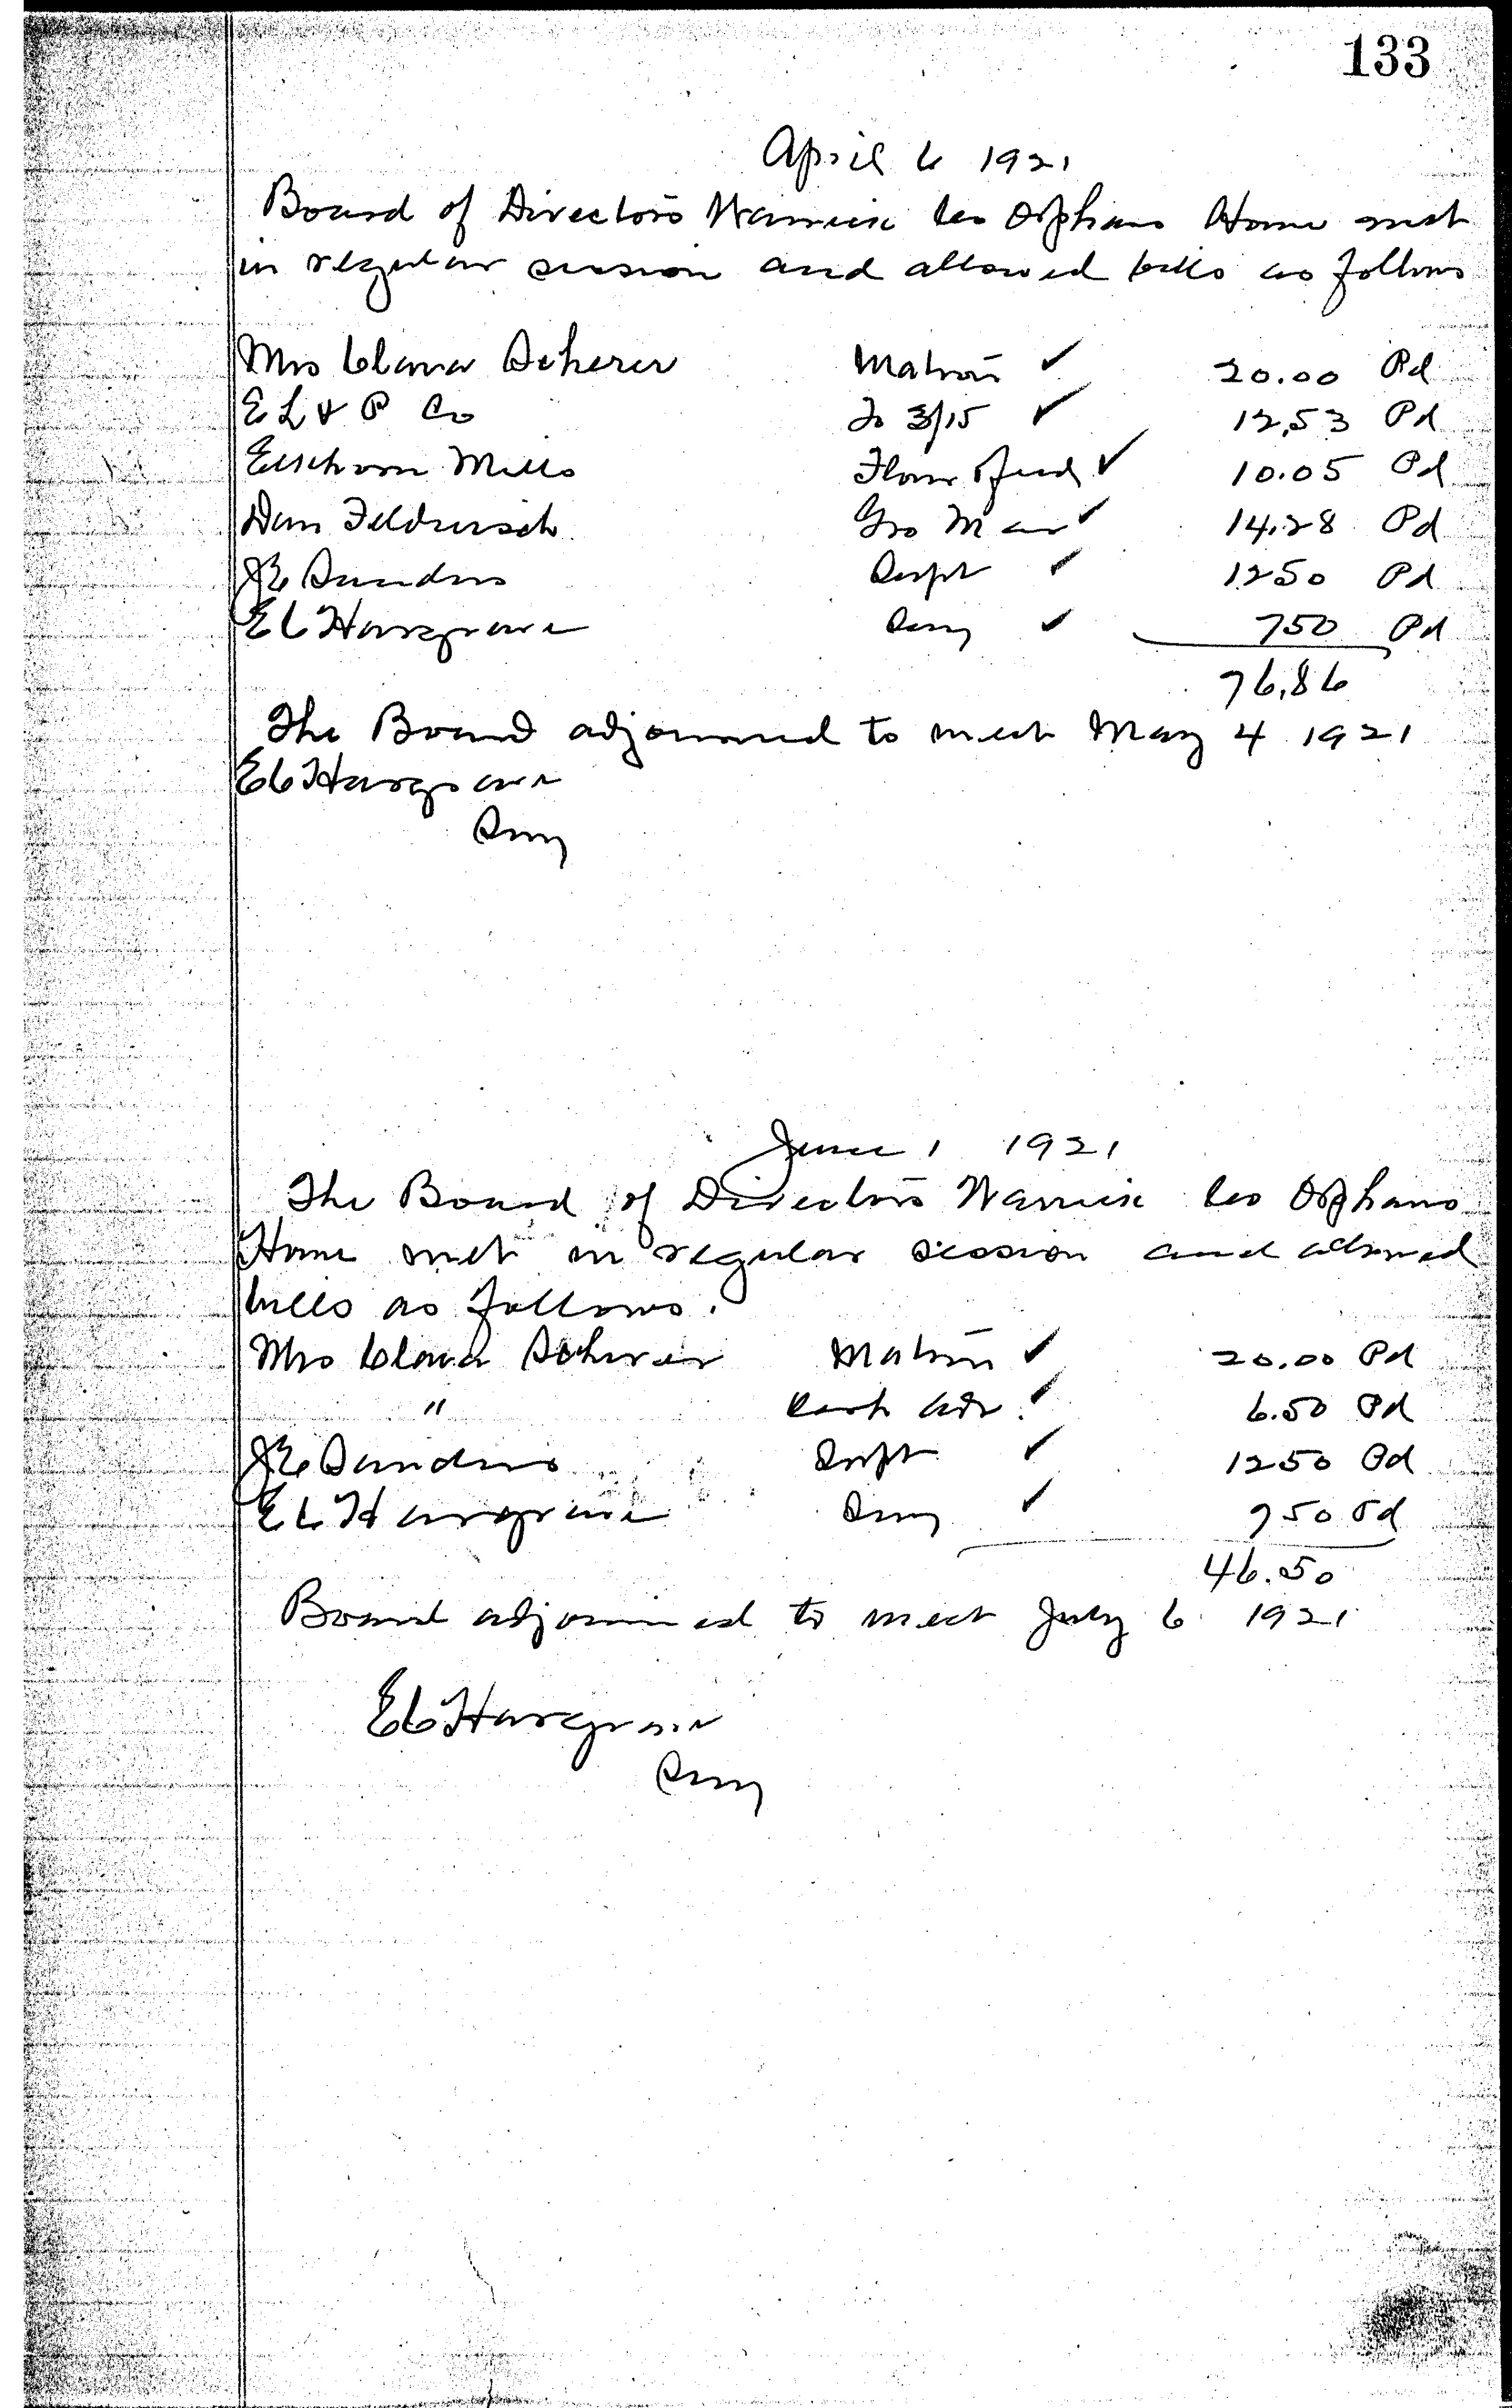 133
April 6 1921
Board of Directors Warrick Co Orphans Home met
in regular session and allowed bills as follows
Mrs Clara Scherer Matron ✓ 20.00 Pd
E L & P Co To 3/15 ✓ 12,53 Pd
Elschoon Mills Flour & feed ✓ 10.05 Pd
Dan Feldrusch Gro ✓ 14.28 Pd
JE Sanders Supt ✓ 1250 Pd
EC Hargrave Secy ✓ 750 Pd
76,86
The Board adjourned to meet May 4 1921
EC Hargrave
Secy
June 1 1921
The Board of Directors Warrick Co Orphans
Home met in regular session and allowed
bills as follows.
Mrs Clara Scherer Matron ✓ 20.00 Pd
" Cash adv. ✓ 6.50 Pd
JE Sanders Supt ✓ 1250 Pd
EC Hargrave Secy ✓ 750 Pd
46.50
Board adjourned to meet July 6 1921
EC Hargrave
Secy